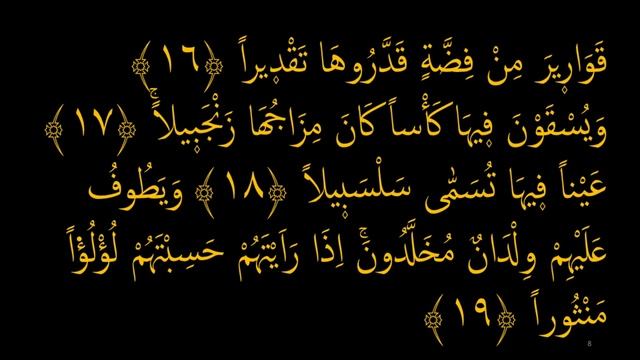 قَوَار۪يرَ مِنْ فِضَّةٍ قَدَّرُوهَا تَقْد۪يراً ﴿١٦﴾
وَيُسْقَوْنَ ف۪يهَا كَأْساً كَانَ مِزَاجُهَا زَنْجَب۪يلاًۚ ﴿١٧﴾
عَيْناً ف۪يهَا تُسَمّٰى سَلْسَب۪يلاً ﴿١٨﴾ وَيَطُوفُ
عَلَيْهِمْ وِلْدَانٌ مُخَلَّدُونَۚ اِذَا رَاَيْتَهُمْ حَسِبْتَهُمْ لُؤْلُؤ۬اً
مَنْثُوراً ﴿١٩﴾
8